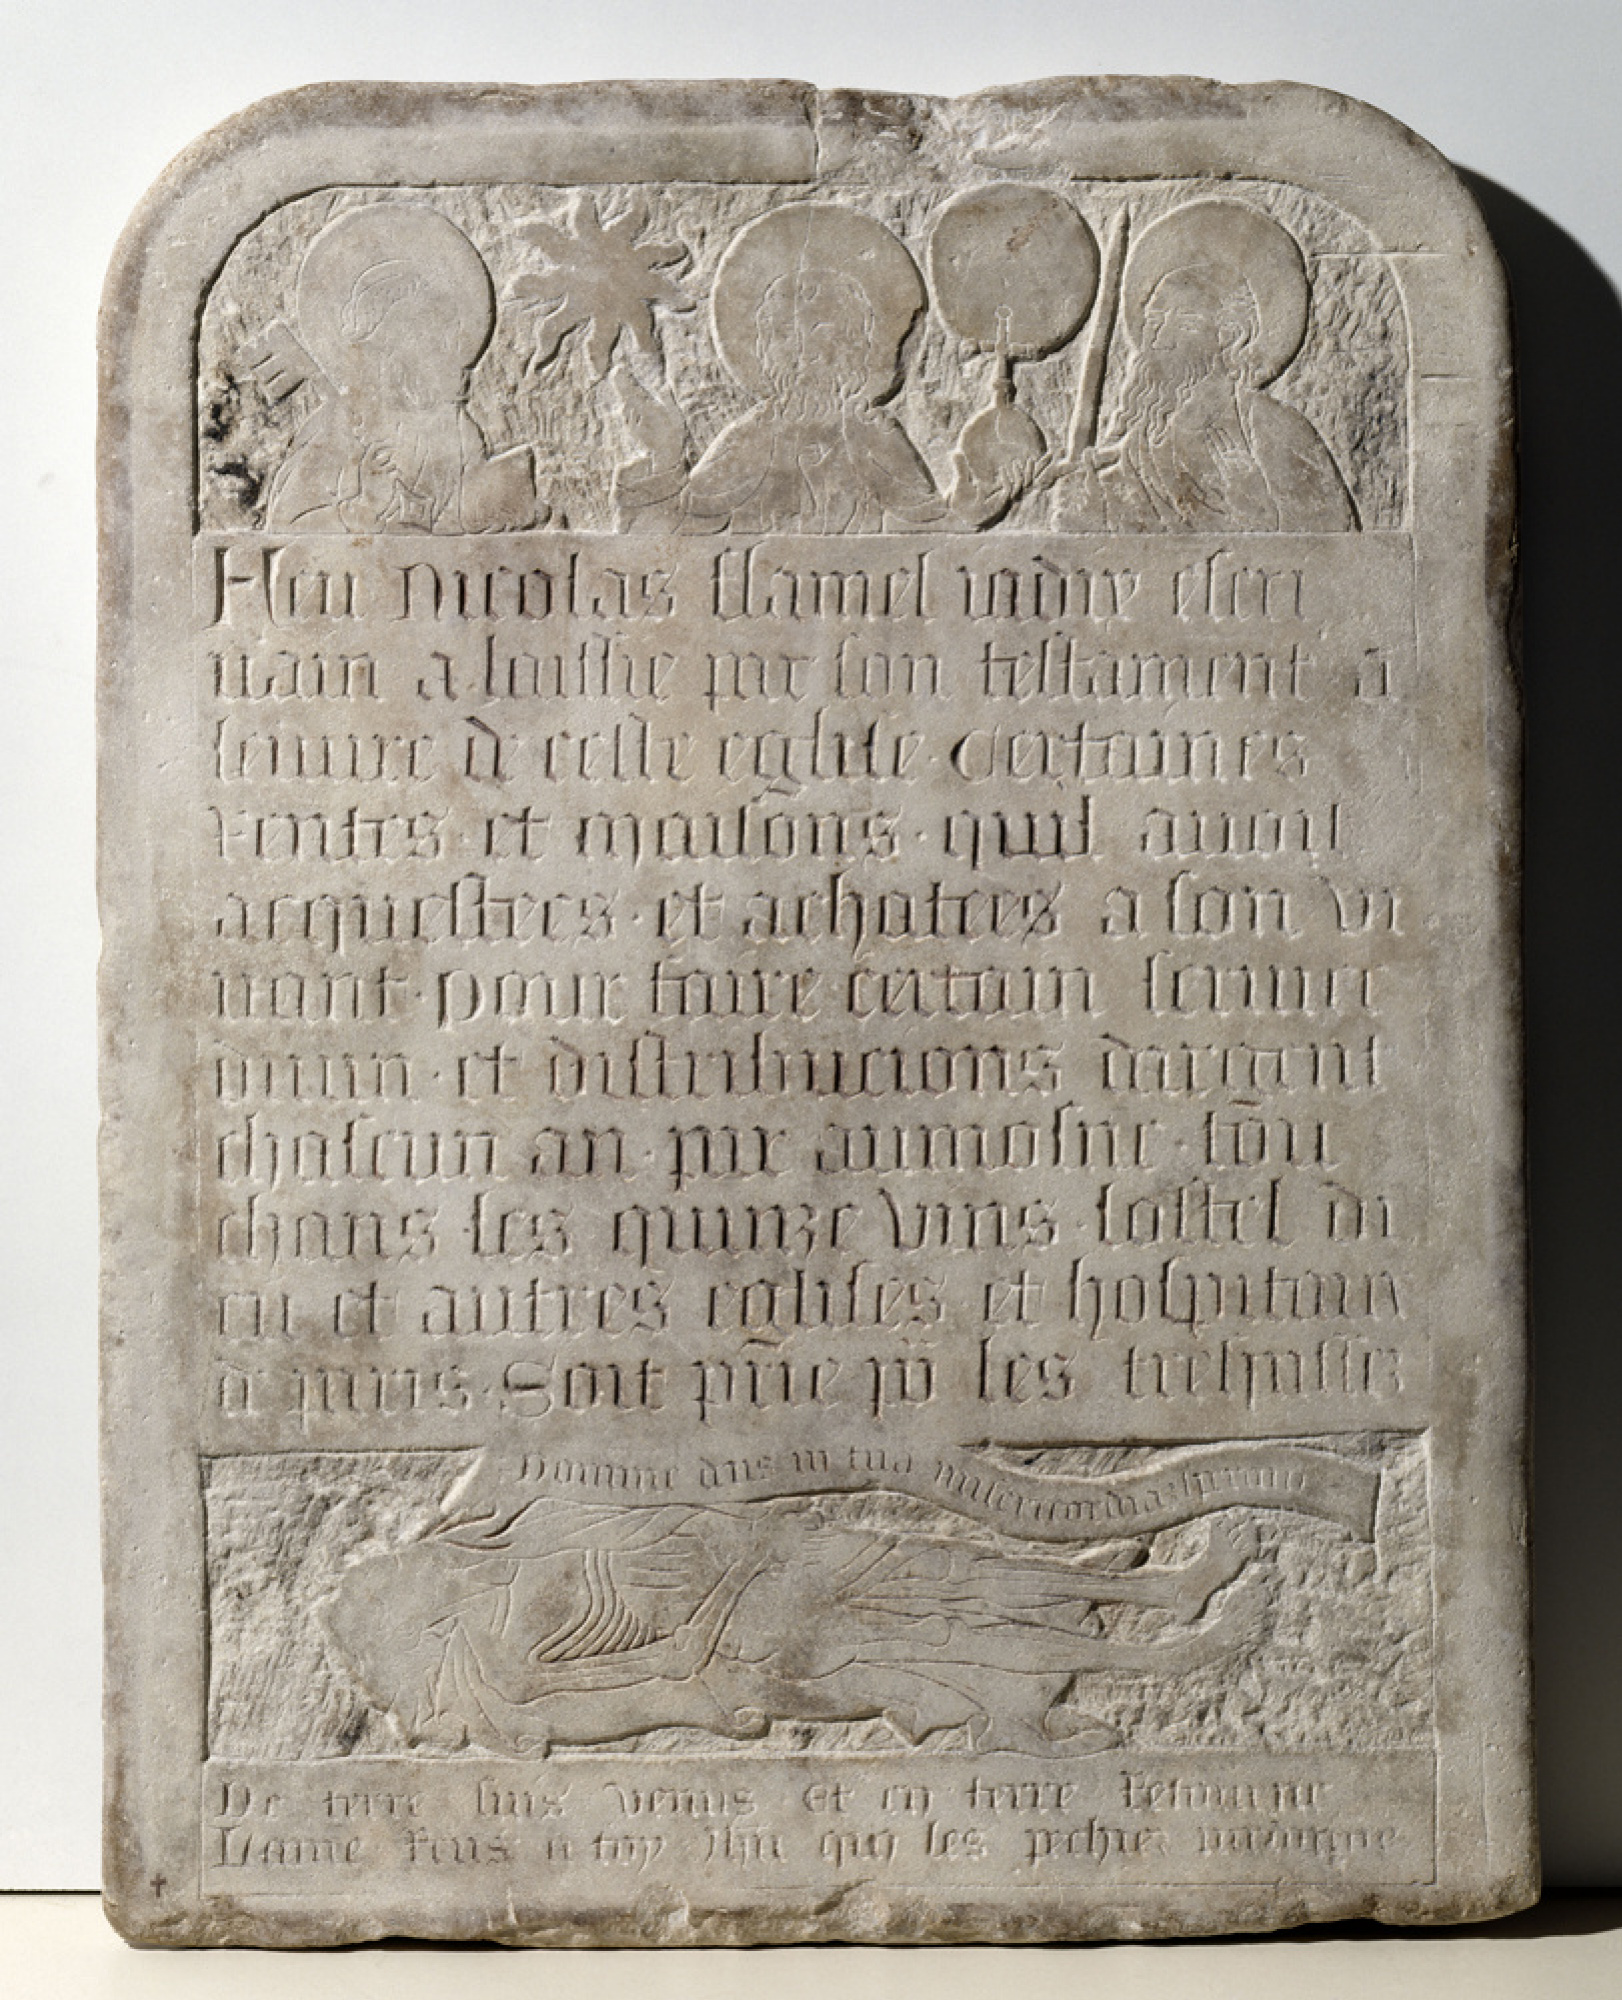 Feu Nicolas flamel iadix escri
uain a laissie par son testament a
leuure de ceste eglise · Certaines
rentes · et maisons · quil auoit
acquestees · et achatees a son vi
uant · pour faire certain seruice
diuin · et distribucions dargent
chascun an · par aumosne · tou
chans · les quinze vins · lostel di
eu et autres eglises et hospitaux
de paris · Soit prie po les trespassez
Domine deus in tua misericordia speraui
De terre suis venus et en terre retourne
Lame rens a toy ihu qui les pechiez pardonne